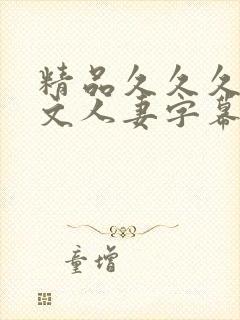 精品久久久
文人妻字幕
童增